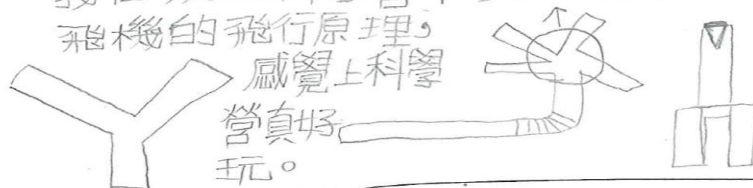 飛機的飛行原理，
感覺上科學
營真好
玩。